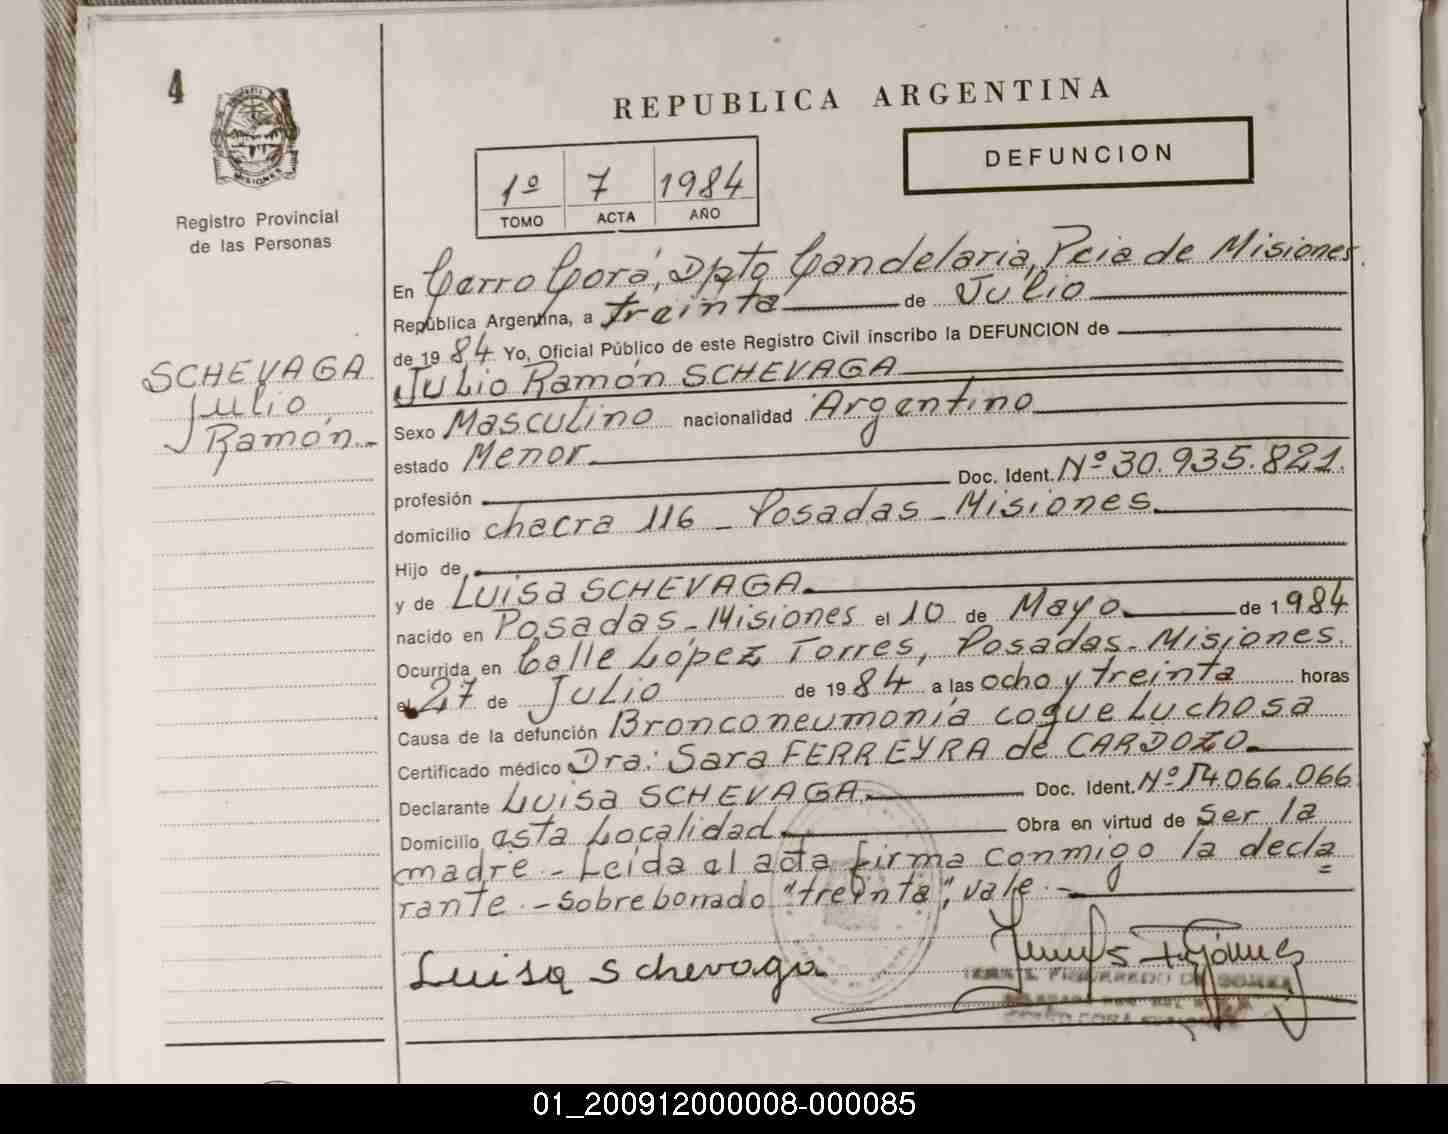 4
REPUBLICA ARGENTINA
DEFUNCION
1º 7 1984
TOMO ACTA AÑO
MISIONES
Registro Provincial
de las Personas
SCHEVAGA
Julio
Ramón.-
En Cerro Corá, Dpto Candelaria, Pcia de Misiones.
República Argentina, a treinta de Julio
de 1984 Yo, Oficial Público de este Registro Civil inscribo la DEFUNCION de
Julio Ramón SCHEVAGA
Sexo Masculino nacionalidad Argentino
estado Menor
profesión Doc. Ident. Nº 30.935.821.
domicilio chacra 116 - Posadas - Misiones.
Hijo de
y de Luisa SCHEVAGA.
nacido en Posadas - Misiones el 10 de Mayo de 1984
Ocurrida en Calle López Torres, Posadas - Misiones.
el 27 de Julio de 1984 a las ocho y treinta horas
Causa de la defunción Bronconeumonía coqueluchosa
Certificado médico Dra: Sara FERREYRA de CARDOZO.
Declarante Luisa SCHEVAGA. Doc. Ident. Nº 14.066.066
Domicilio asta Localidad Obra en virtud de ser la
madre.- Leída el acta firma conmigo la decla
rante.- Sobreborrado "treinta", vale.-
Luisa Schevaga
01_200912000008-000085